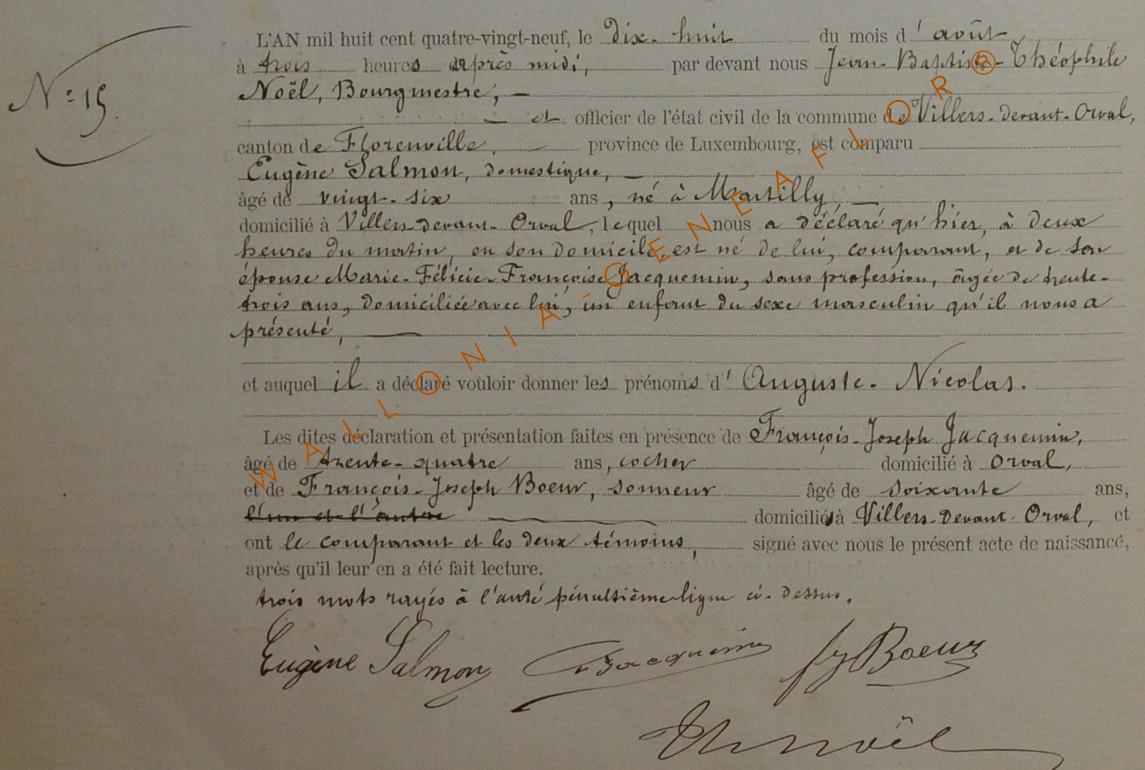 N° 15.
L'AN mil huit cent quatre-vingt-neuf, le dix-huit du mois d'août
à trois heures après midi, par devant nous Jean-Baptiste-Théophile
Noël, Bourgmestre,
et officier de l'état civil de la commune de Villers-devant-Orval,
canton de Florenville, province de Luxembourg, est comparu
Eugène Salmon, domestique,
âgé de vingt-six ans, né à Martilly,
domicilié à Villers-devant-Orval, lequel nous a déclaré qu'hier, à deux
heures du matin, en son domicile est né de lui, comparant, et de son
épouse Marie-Félicie-Françoise Jacquemin, sans profession, âgée de trente-
trois ans, domiciliée avec lui, un enfant du sexe masculin qu'il nous a
présenté,
et auquel il a déclaré vouloir donner les prénoms d'Auguste-Nicolas.
Les dites déclaration et présentation faites en présence de François-Joseph Jacquemin,
âgé de trente-quatre ans, cocher domicilié à Orval,
et de François-Joseph Boeur, sonneur âgé de soixante ans,
l'un et l'autre domiciliés à Villers-Devant-Orval, et
ont le comparant et les deux témoins, signé avec nous le présent acte de naissance,
après qu'il leur en a été fait lecture.
trois mots rayés à l'anté pénultième ligne ci-dessus.
Eugène Salmon Jacquemin fj Boeur
Th Noël
WALLONIA-GENEAFLOR®